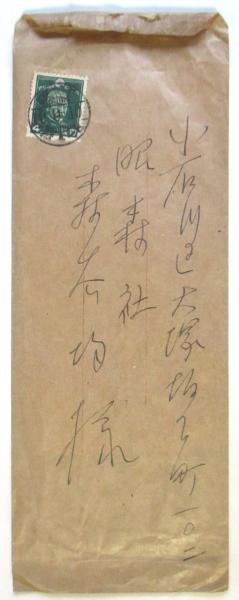 小石川区大塚坂下町一〇二
昭森社
森谷均様